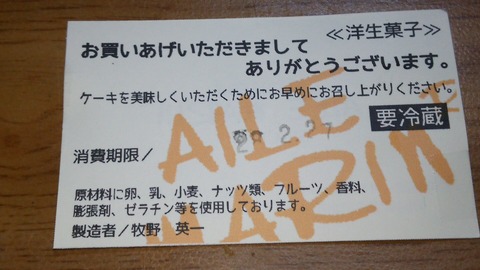 ≪洋生菓子≫
お買いあげいただきまして
ありがとうございます。
ケーキを美味しくいただくためにお早めにお召し上がりください。
要冷蔵
消費期限/
2.27
原材料に卵、乳、小麦、ナッツ類、フルーツ、香料、
膨張剤、ゼラチン等を使用しております。
製造者/牧野 英一
AILE
MARIN